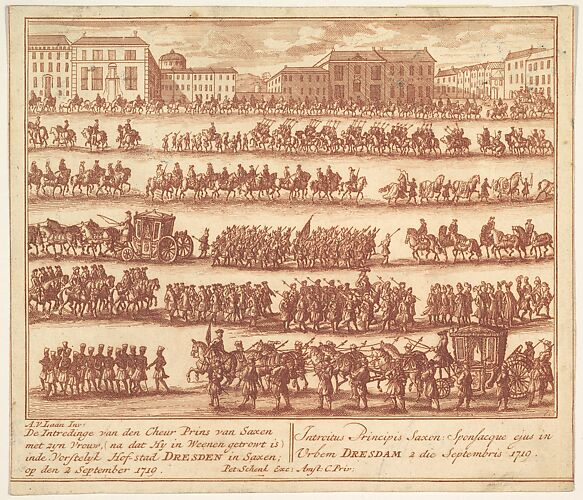 A.V.Laan Inv:
De Intredinge van den Cheur Prins van Saxen
met zyn Vrouw, (na dat Hy in Weenen getrowt is)
inde Vorstelyk Hof-stad DRESDEN in Saxen;
op den 2 September 1719.
Pet: Schenk Exc: Amst: C. Priv:
Introitus Principis Saxon: Sponsaeque ejus in
Urbem DRESDAM 2 die Septembris 1719.